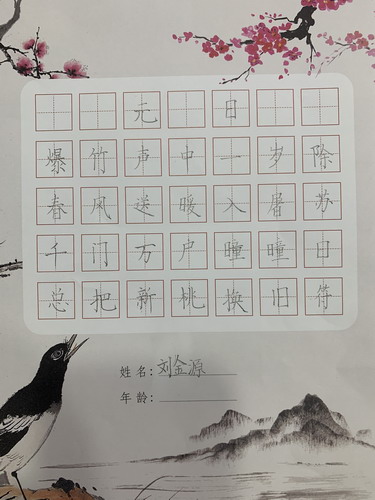 元日
爆竹声中一岁除
春风送暖入屠苏
千门万户曈曈日
总把新桃换旧符
姓名:刘金源
年龄: